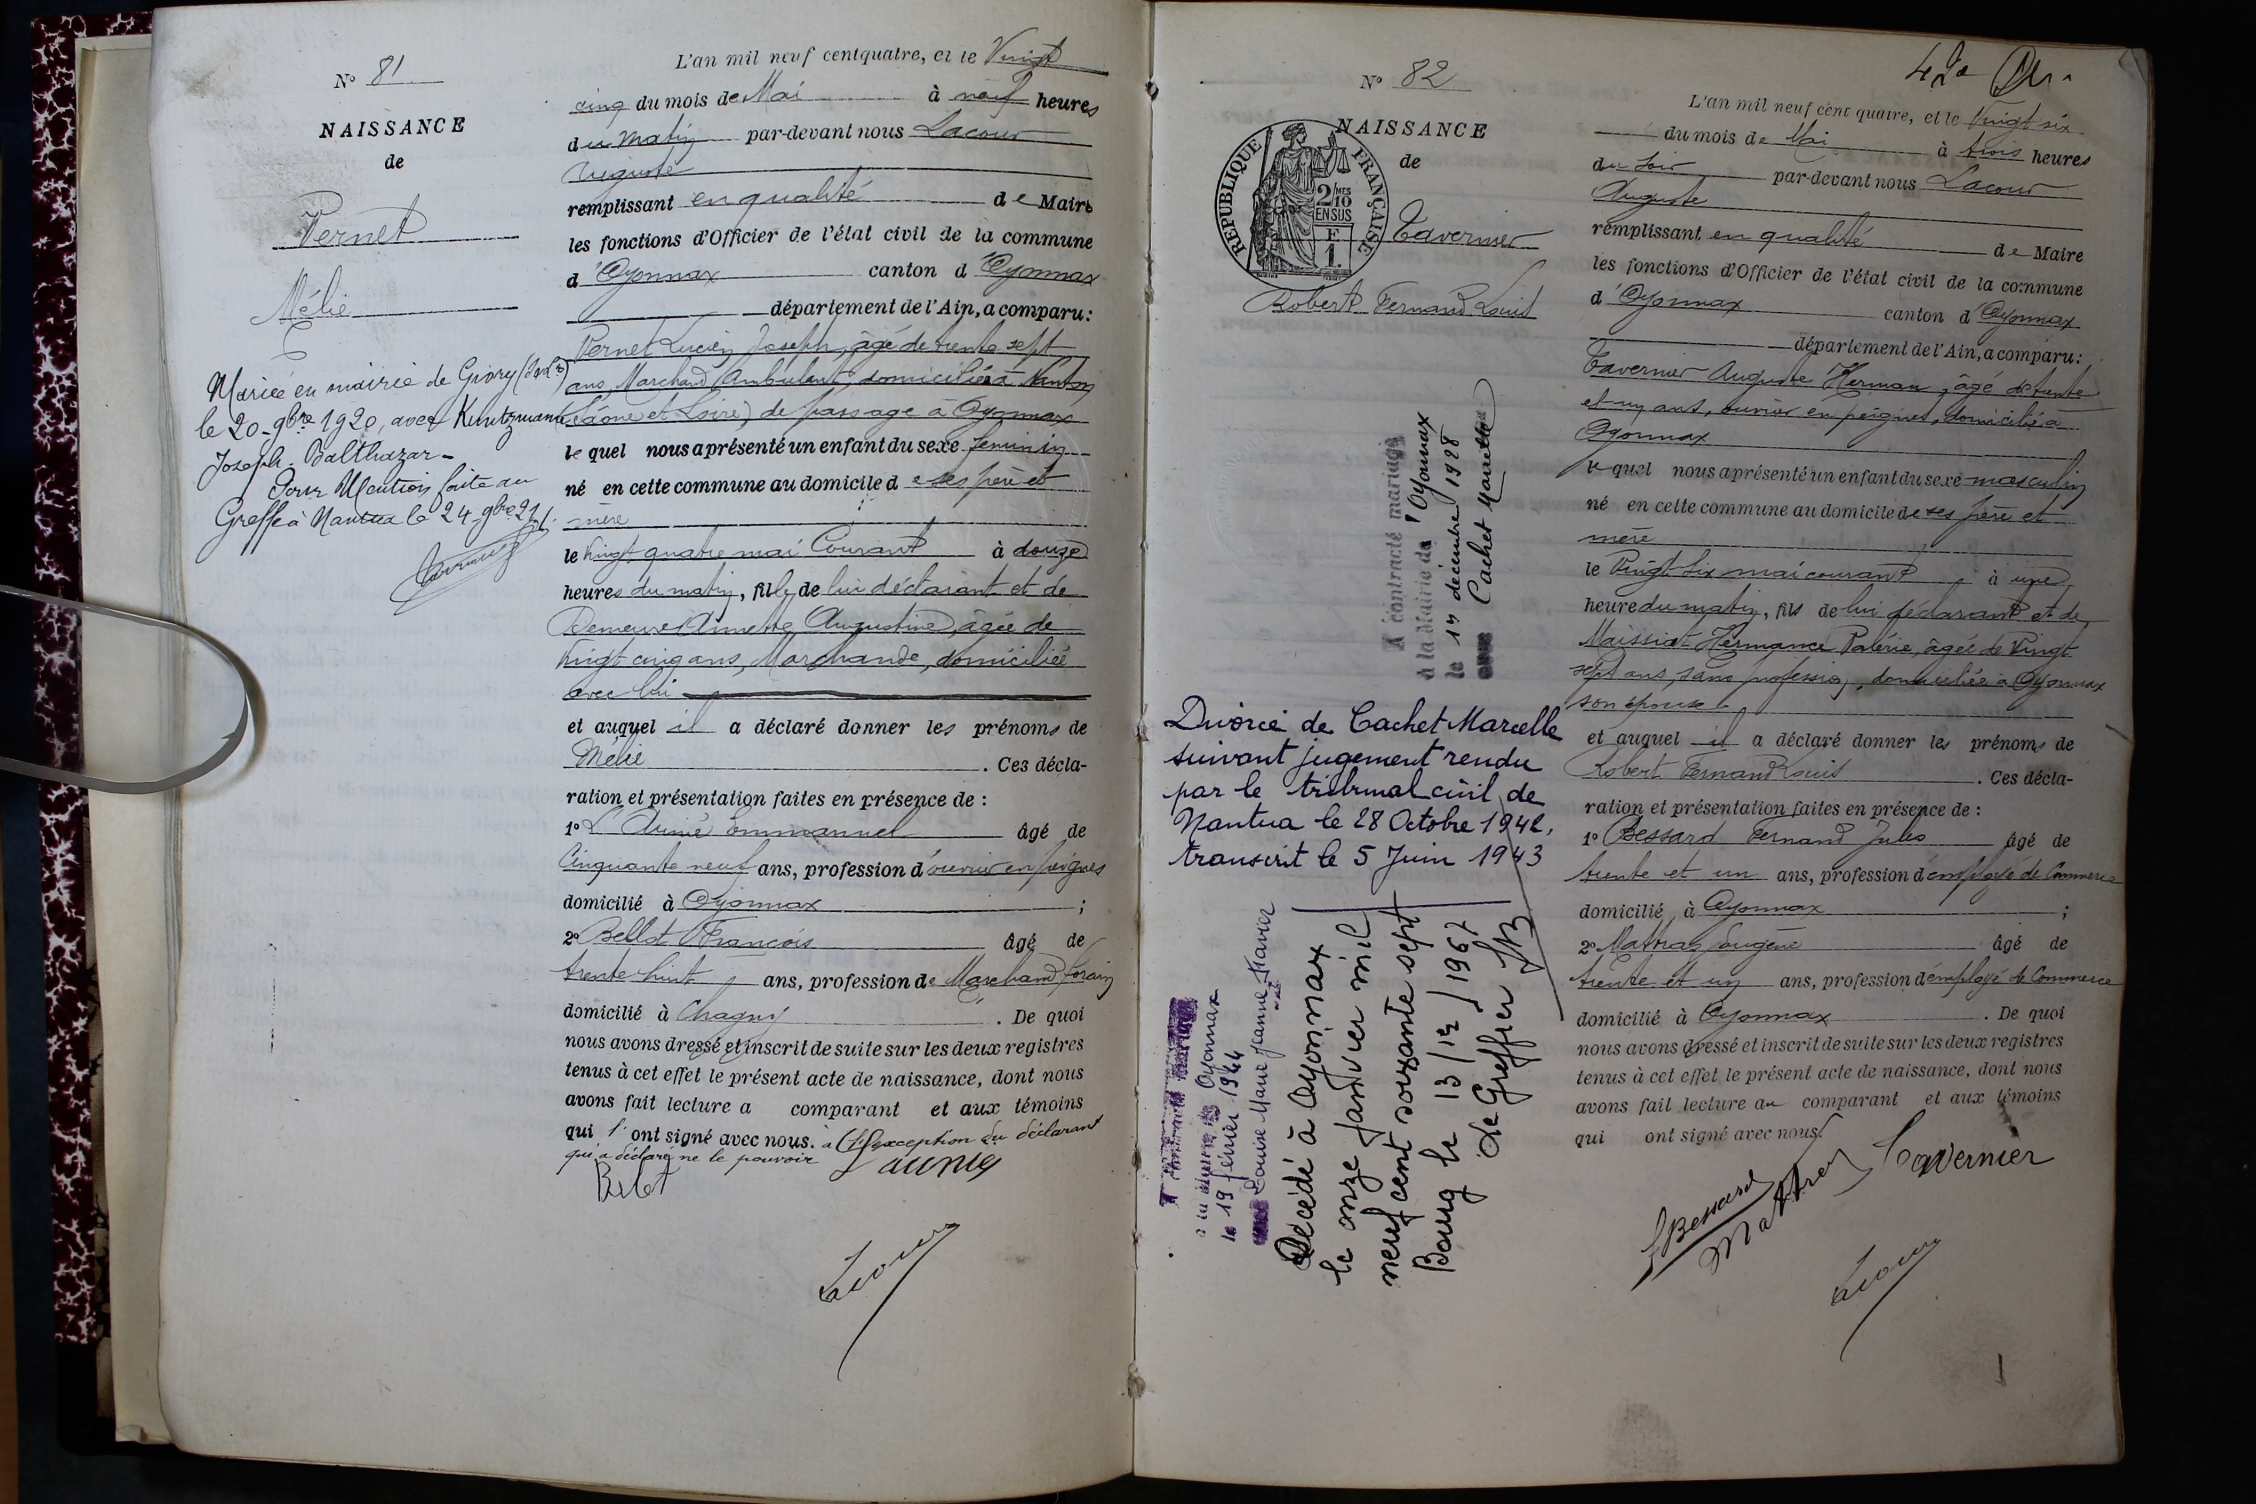 N° 81
NAISSANCE
de
Vernet
Mélie
Mariée en mairie de Givry (S. et L.)
le 20 9bre 1920, avec Kuntzmann
Joseph Balthazar -
Pour Mention faite au
Greffe à Nantua le 24 9bre 21
L'an mil neuf cent quatre, et le Vingt
cinq du mois de Mai à neuf heures
du matin par-devant nous Lacour
Auguste
remplissant en qualité de Maire
les fonctions d'Officier de l'état civil de la commune
d'Oyonnax canton d'Oyonnax
département de l'Ain, a comparu :
Vernet Lucien Joseph, âgé de trente sept
ans, Marchand Ambulant, domicilié à
(Saône et Loire) de passage à Oyonnax
lequel nous a présenté un enfant du sexe féminin
né en cette commune au domicile de ses père et
mère
le vingt quatre mai Courant à douze
heures du matin, fille de lui déclarant et de
Demeure Annette Augustine, âgée de
vingt cinq ans, Marchande, domiciliée
avec lui
et auquel il a déclaré donner les prénoms de
Mélie . Ces décla-
ration et présentation faites en présence de :
1° Emmanuel âgé de
Cinquante neuf ans, profession d'ouvrier en peignes
domicilié à Oyonnax ;
2° Bellot François âgé de
trente huit ans, profession de Marchand forain
domicilié à Chagny . De quoi
nous avons dressé et inscrit de suite sur les deux registres
tenus à cet effet le présent acte de naissance, dont nous
avons fait lecture a comparant et aux témoins
qui l'ont signé avec nous. à l'exception du déclarant
qui a déclaré ne le pouvoir
Belot
Lacour
N° 82
NAISSANCE
de
RÉPUBLIQUE FRANÇAISE
2/10 MES
EN SUS
F
1.
Tavernier
Robert Fernand Louis
A contracté mariage
à la Mairie de Oyonnax
le 17 décembre 1928
avec Cachet Marcelle
Divorcé de Cachet Marcelle
suivant jugement rendu
par le tribunal civil de
Nantua le 28 Octobre 1942,
transcrit le 5 Juin 1943
A contracté mariage
à la Mairie de Oyonnax
le 19 février 1944
avec Louise Marie Jeanne
Décédé à Oyonnax
le onze janvier mil
neuf cent soixante sept
Bourg le 13/12/1967
Le Greffier
L'an mil neuf cent quatre, et le Vingt six
du mois de Mai à trois heures
du soir par-devant nous Lacour
Auguste
remplissant en qualité de Maire
les fonctions d'Officier de l'état civil de la commune
d'Oyonnax canton d'Oyonnax
département de l'Ain, a comparu :
Tavernier Auguste Herman, âgé de trente
et un ans, ouvrier en peignes, domicilié à
Oyonnax
lequel nous a présenté un enfant du sexe masculin
né en cette commune au domicile de ses père et
mère
le Vingt six mai courant à une
heure du matin, fils de lui déclarant et de
Maissiat Hermance Valérie, âgée de Vingt
sept ans, sans profession, domiciliée à Oyonnax
son épouse
et auquel il a déclaré donner les prénoms de
Robert Fernand Louis . Ces décla-
ration et présentation faites en présence de :
1° Bessard Fernand Jules âgé de
trente et un ans, profession d'employé de Commerce
domicilié à Oyonnax ;
2° Mathray Eugène âgé de
trente et un ans, profession d'employé de Commerce
domicilié à Oyonnax . De quoi
nous avons dressé et inscrit de suite sur les deux registres
tenus à cet effet le présent acte de naissance, dont nous
avons fait lecture au comparant et aux témoins
qui ont signé avec nous.
Tavernier
Bessard
Lacour